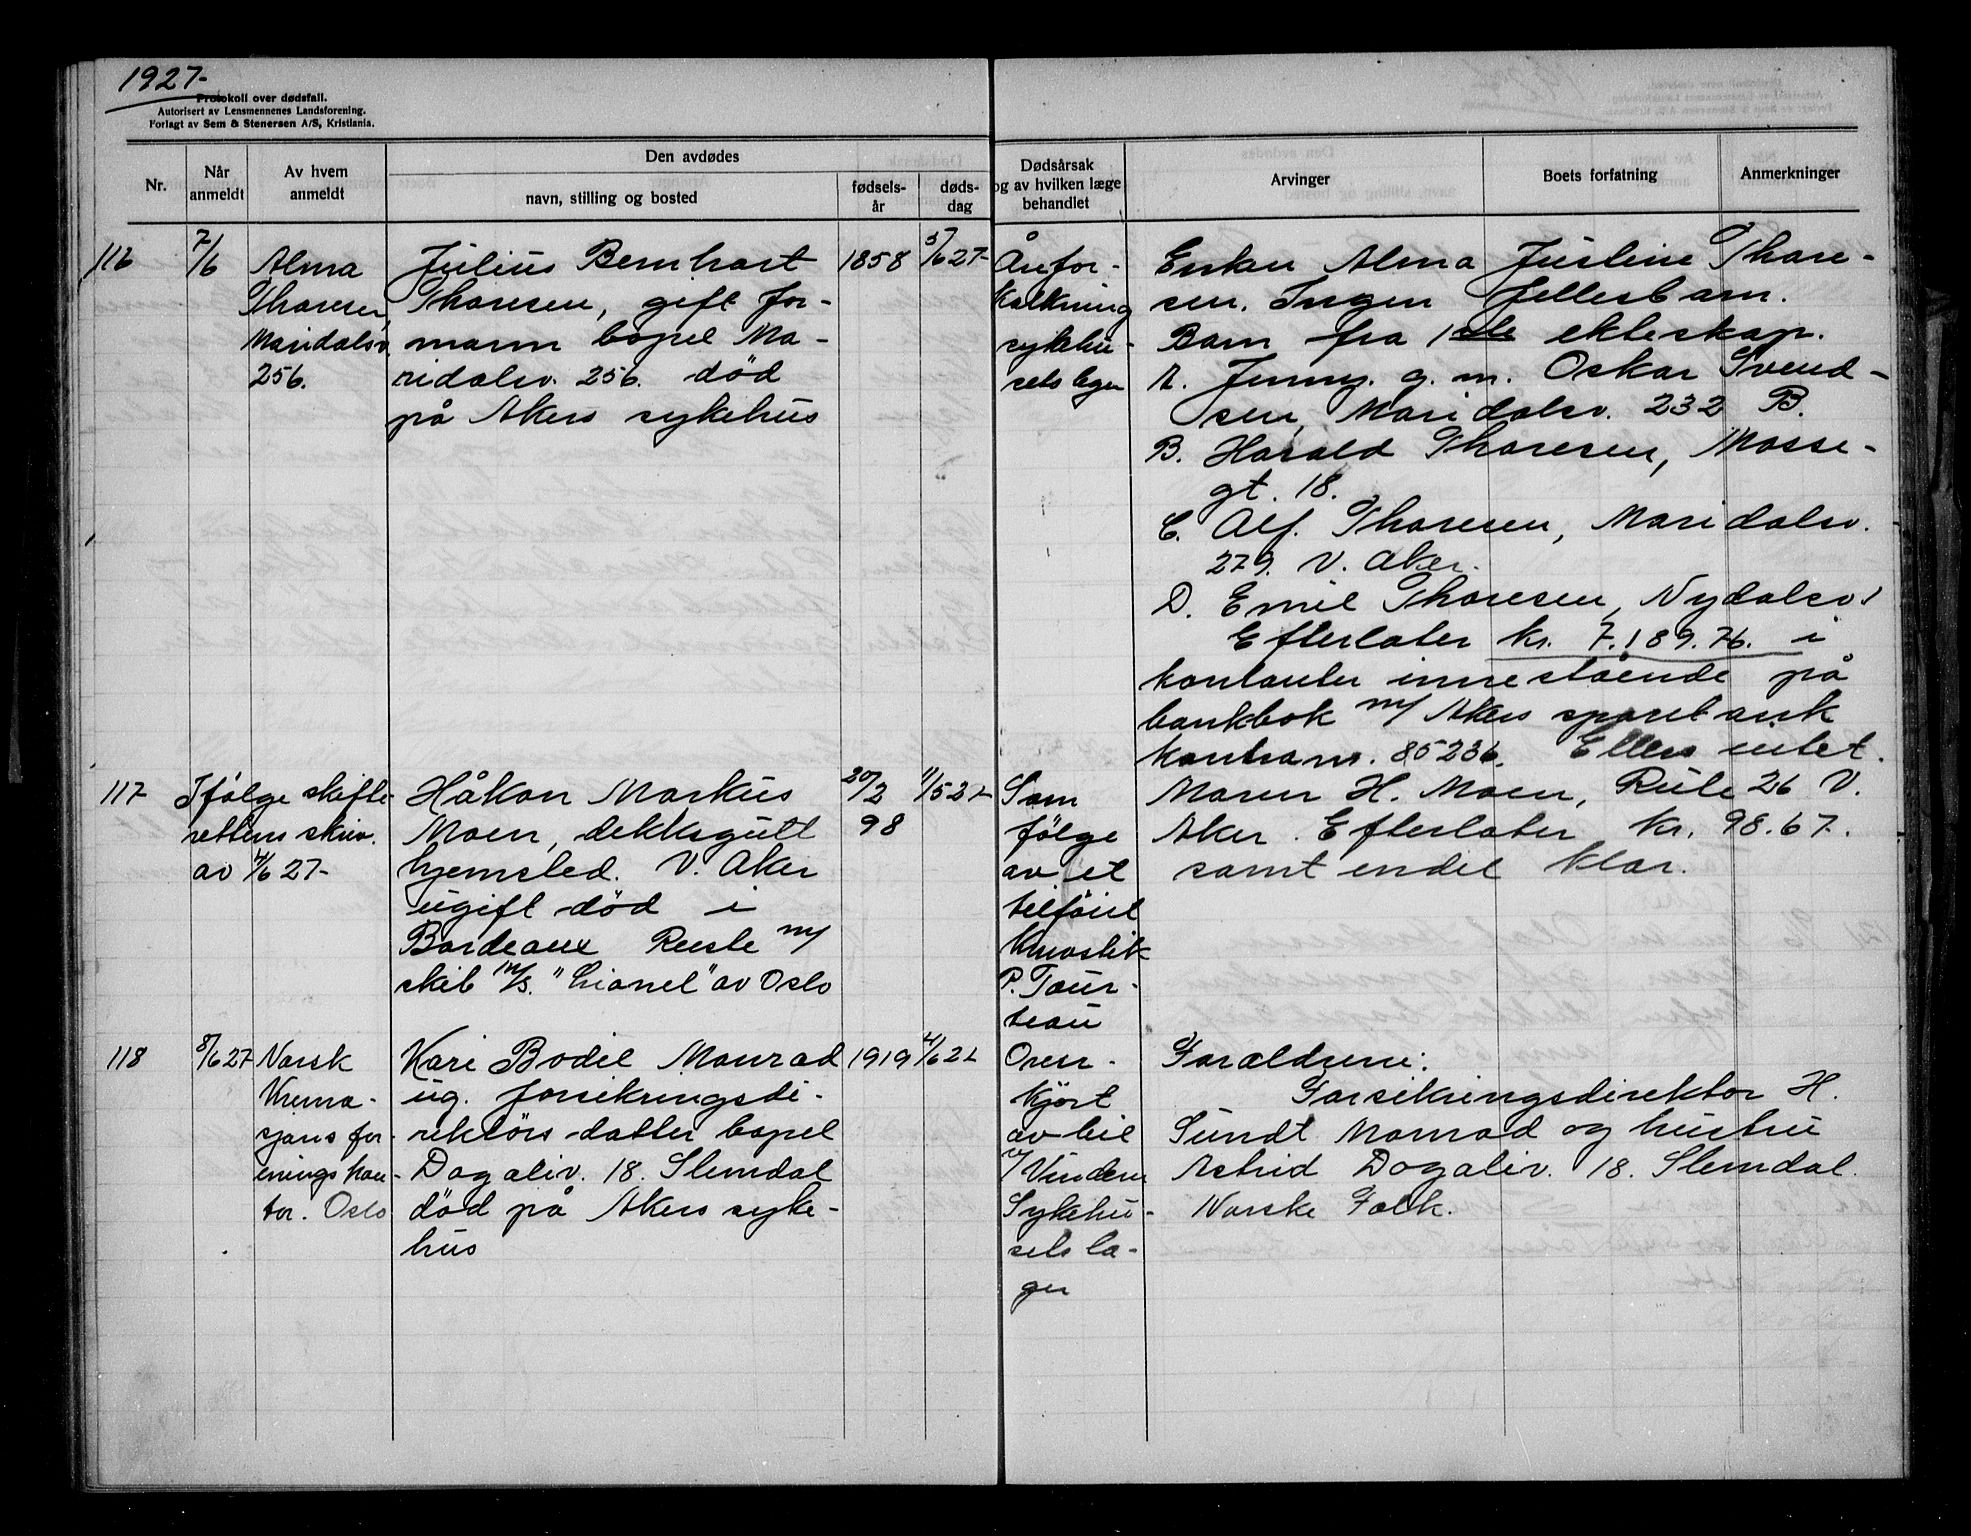 1927-
Protokoll over dødsfall.
Autorisert av Lensmennenes Landsforening.
Forlagt av Sem & Stenersen A/S, Kristiania.
Nr.
Når anmeldt
Av hvem anmeldt
Den avdødes
navn, stilling og bosted
fødsels-
år
døds-
dag
Dødsårsak
og av hvilken læge
behandlet
Arvinger
Boets forfatning
Anmerkninger
116
7/6
Alma
Thoresen,
Maridalsv
256.
Julius Bernhart
Thoresen, gift for-
mann bopel Ma-
ridalsv. 256. død
på Akers sykehus
1858
5/6 27-
Årefor-
kalkning
sykehu-
sets leger
Enken Alma Justine Thore-
sen. Ingen fellesbarn.
Barn fra 1ste ekteskap.
A. Jenny. g. m. Oskar Svend-
sen, Maridalsv. 232 B.
B. Harald Thoresen, Mosse-
gt. 18.
C. Alf. Thoresen, Maridalsv.
279. V. Aker.
D. Emil Thoresen, Nydalsv.
Efterlater kr. 7.189.76. i
kontanter innestående på
bankbok m/ Akers sparebank
kontranr. 85236. Ellers intet.
117
Ifølge skifte-
rettens skriv.
av 4/6 27-
Håkon Markus
Moen, dekksgutt
hjemsted. V. Aker
ugift død i
Bordeaux Reiste m/
skib M/S. "Lionel" av Oslo
20/2
98
11/5 27-
Som
følge
av et
tilføiet
knivstik
P. Tour-
teau
Maren H. Moen, Rute 26 V.
Aker. Efterlater kr. 98.67.
samt endel klær.
118
8/6 27
Norsk
Krema-
sjons for-
enings kon-
tor. Oslo
Kari Bodil Monrad
ug. forsikringsdi-
rektørs datter bopel
Dagaliv. 18. Slemdal
død på Akers syke-
hus
1919
4/6 27
Over-
kjørt
av bil
v/ Vindern
Sykehu-
sets læ-
ger
Forældrene:
Forsikringsdirektør H.
Sundt Monrad og hustru
Astrid Dagaliv. 18. Slemdal.
Norske Folk.